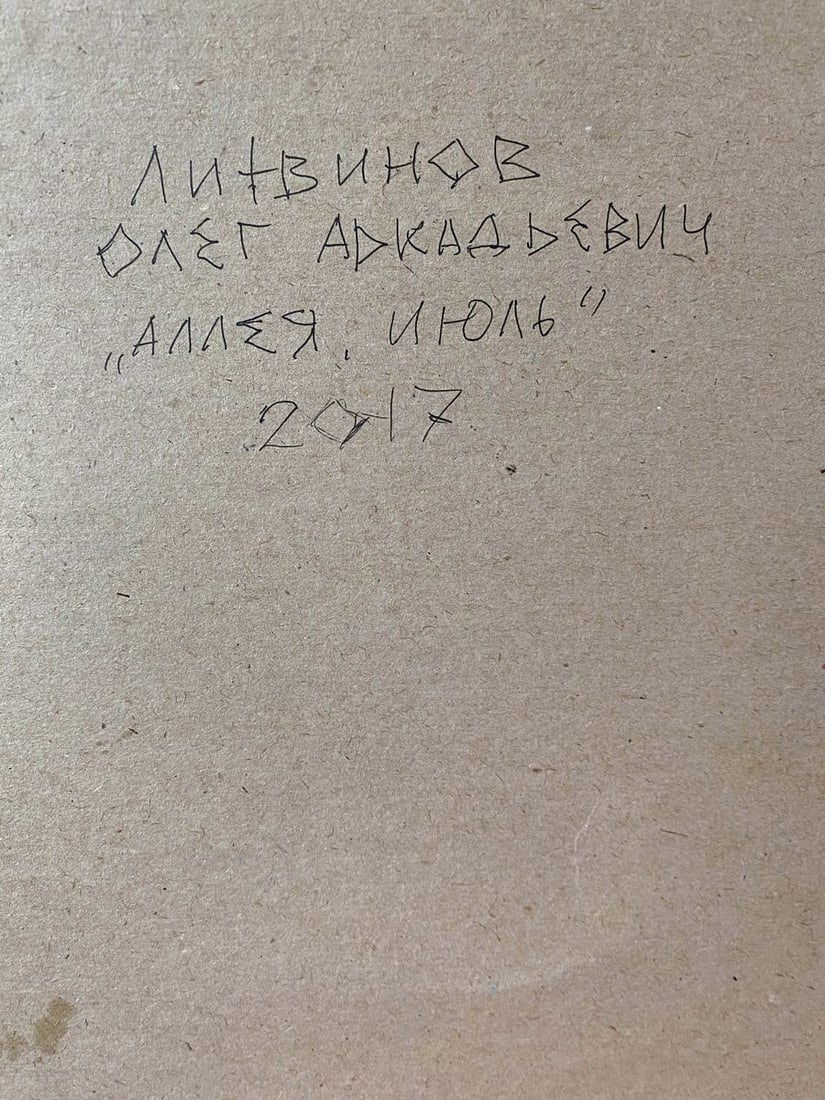 ЛИТВИНОВ
ОЛЕГ АРКАДЬЕВИЧ
„АЛЛЕЯ. ИЮЛЬ"
2017